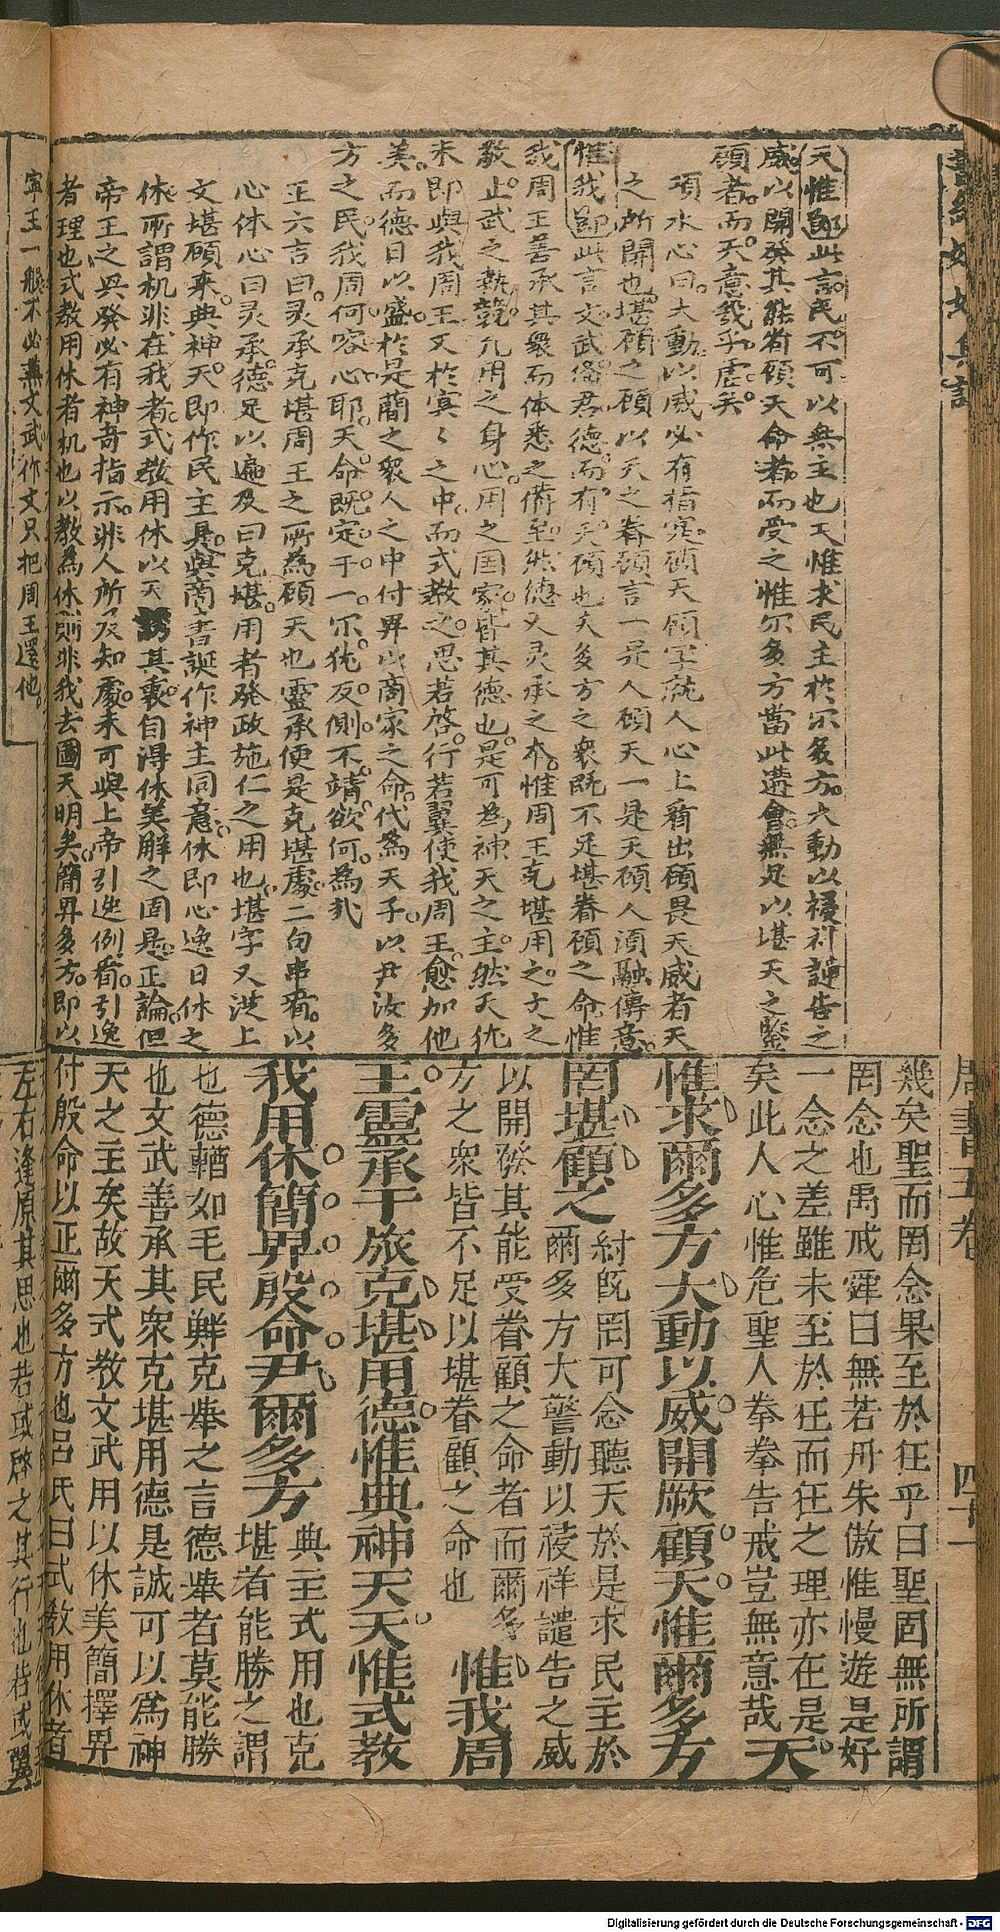 天惟節此言民不可以無主也天惟求民主於尔多方大動以祲祥譴告之
威以開發其能者顧天命者而受之惟尔多方當此遘會無足以堪天之鑒
顧者而天意幾乎虛矣
項水心曰大動以威必有指定顧天顧字就人心上看出顧畏天威者天
之所開也堪顧之顧以天之眷顧言一是人顧天一是天顧人須融傳意
惟我節此言文武俻君德而有天顧也夫多方之衆既不足堪眷顧之命惟
我周王善承其衆而体悉之備至然德又灵承之本惟周王克堪用之文之
敬止武之執競凡用之身心用之国家皆其德也是可為神天之主然天休
未即與我周王又於冥々之中而式教之思若啓行若翼使我周王愈加他
美而德日以盛於是蕳之衆人之中付畀以商家之命代為天子以尹汝多
方之民我周何容心耶天命既定于一尔猶反側不靖欲何為哉
王六言曰灵承克堪周王之所為顧天也靈承便是克堪處二句串看以
心体心曰灵承德足以遍及曰克堪用者発政施仁之用也堪字又從上
文堪顧来典神天即作民主是與商書誕作神主同意休即心逸日休之
休所謂机非在我者式教用休以天誘其衷自得休美解之固是正論但
帝王之興発必有神奇指示非人所及知處未可與上帝引逸例看引逸
者理也式教用休者机也以教為休則非我去國天明矣簡畀多方即以
寧王一般不必葉文武作文只把周王還他
周書五卷
四十一
幾矣聖而罔念果至於狂乎曰聖固無所謂
罔念也禹戒舜曰無若丹朱傲惟慢遊是好
一念之差雖未至於狂而狂之理亦在是
矣此人心惟危聖人拳拳告戒豈無意哉天
惟求爾多方大動以威開厥顧天惟爾多方
罔堪顧之紂既罔可念聽天於是求民主於
爾多方大警動以祲祥譴告之威
以開發其能受眷顧之命者而爾多
方之衆皆不足以堪眷顧之命也惟我周
王靈承于旅克堪用德惟典神天天惟式教
我用休簡畀殷命尹爾多方典主式用也克
堪者能勝之謂
也德輶如毛民鮮克舉之言德舉者莫能勝
也文武善承其衆克堪用德是誠可以為神
天之主矣故天式教文武用以休美簡擇畀
付殷命以正爾多方也呂氏曰式教用休者
左右逢原其思也若或啓之其行也若或翼
Digitalisierung gefördert durch die Deutsche Forschungsgemeinschaft - DFG